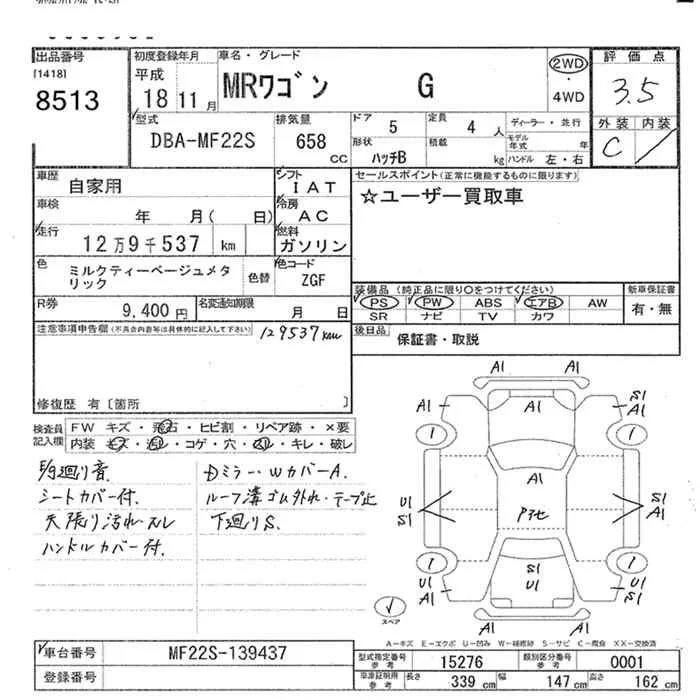 出品番号
[1418]
8513
初度登録年月
平成
18 11 月
車名・グレード
MRワゴン G
2WD
・
4WD
評価点
3.5
外装 内装
C
型式
DBA-MF22S
排気量
658
CC
ドア
5
定員
4 人
形状
ハッチB
積載
kg
ディーラー・並行
モデル年式 年
ハンドル 左・右
車歴
自家用
シフト
IAT
車検
年 月( 日)
冷房
AC
走行
12万9千537 km
燃料
ガソリン
色
ミルクティーベージュメタリック
色替
色コード
ZGF
R券
9,400円
名変通知期限
月 日
セールスポイント(正常に機能するものに限ります)
☆ユーザー買取車
装備品 (純正品に限り○をつけてください)
PS PW ABS エアB AW
SR ナビ TV カワ
新車保証書
有・無
後日品
保証書・取説
注意事項申告欄(不具合内容等は具体的に記入して下さい)
129537km
修復歴 有〔箇所 〕
検査員記入欄
FW キズ・飛石・ヒビ割・リペア跡・×要
内装 キズ・汚レ・コゲ・穴・スレ・キレ・破レ
シートカバー付.
天張り汚れ・スレ
ハンドルカバー付.
Dミラー・WカバーA.
ルーフ溝ゴム外れ・テープ止
下廻りS.
A1
A1 A1 S1
A1
A1
U1
S1
S1
A1
S1
U1
U1
A1
U1
A1
A1
スペア
A-キズ E-エクボ U-凹み W-補修跡 S-サビ C-腐食 XX-交換済
車台番号
MF22S-139437
登録番号
型式指定番号
参考
15276
類別区分番号
参考
0001
車庫証明用
参考
長さ 339 cm 幅 147 cm 高さ 162 cm